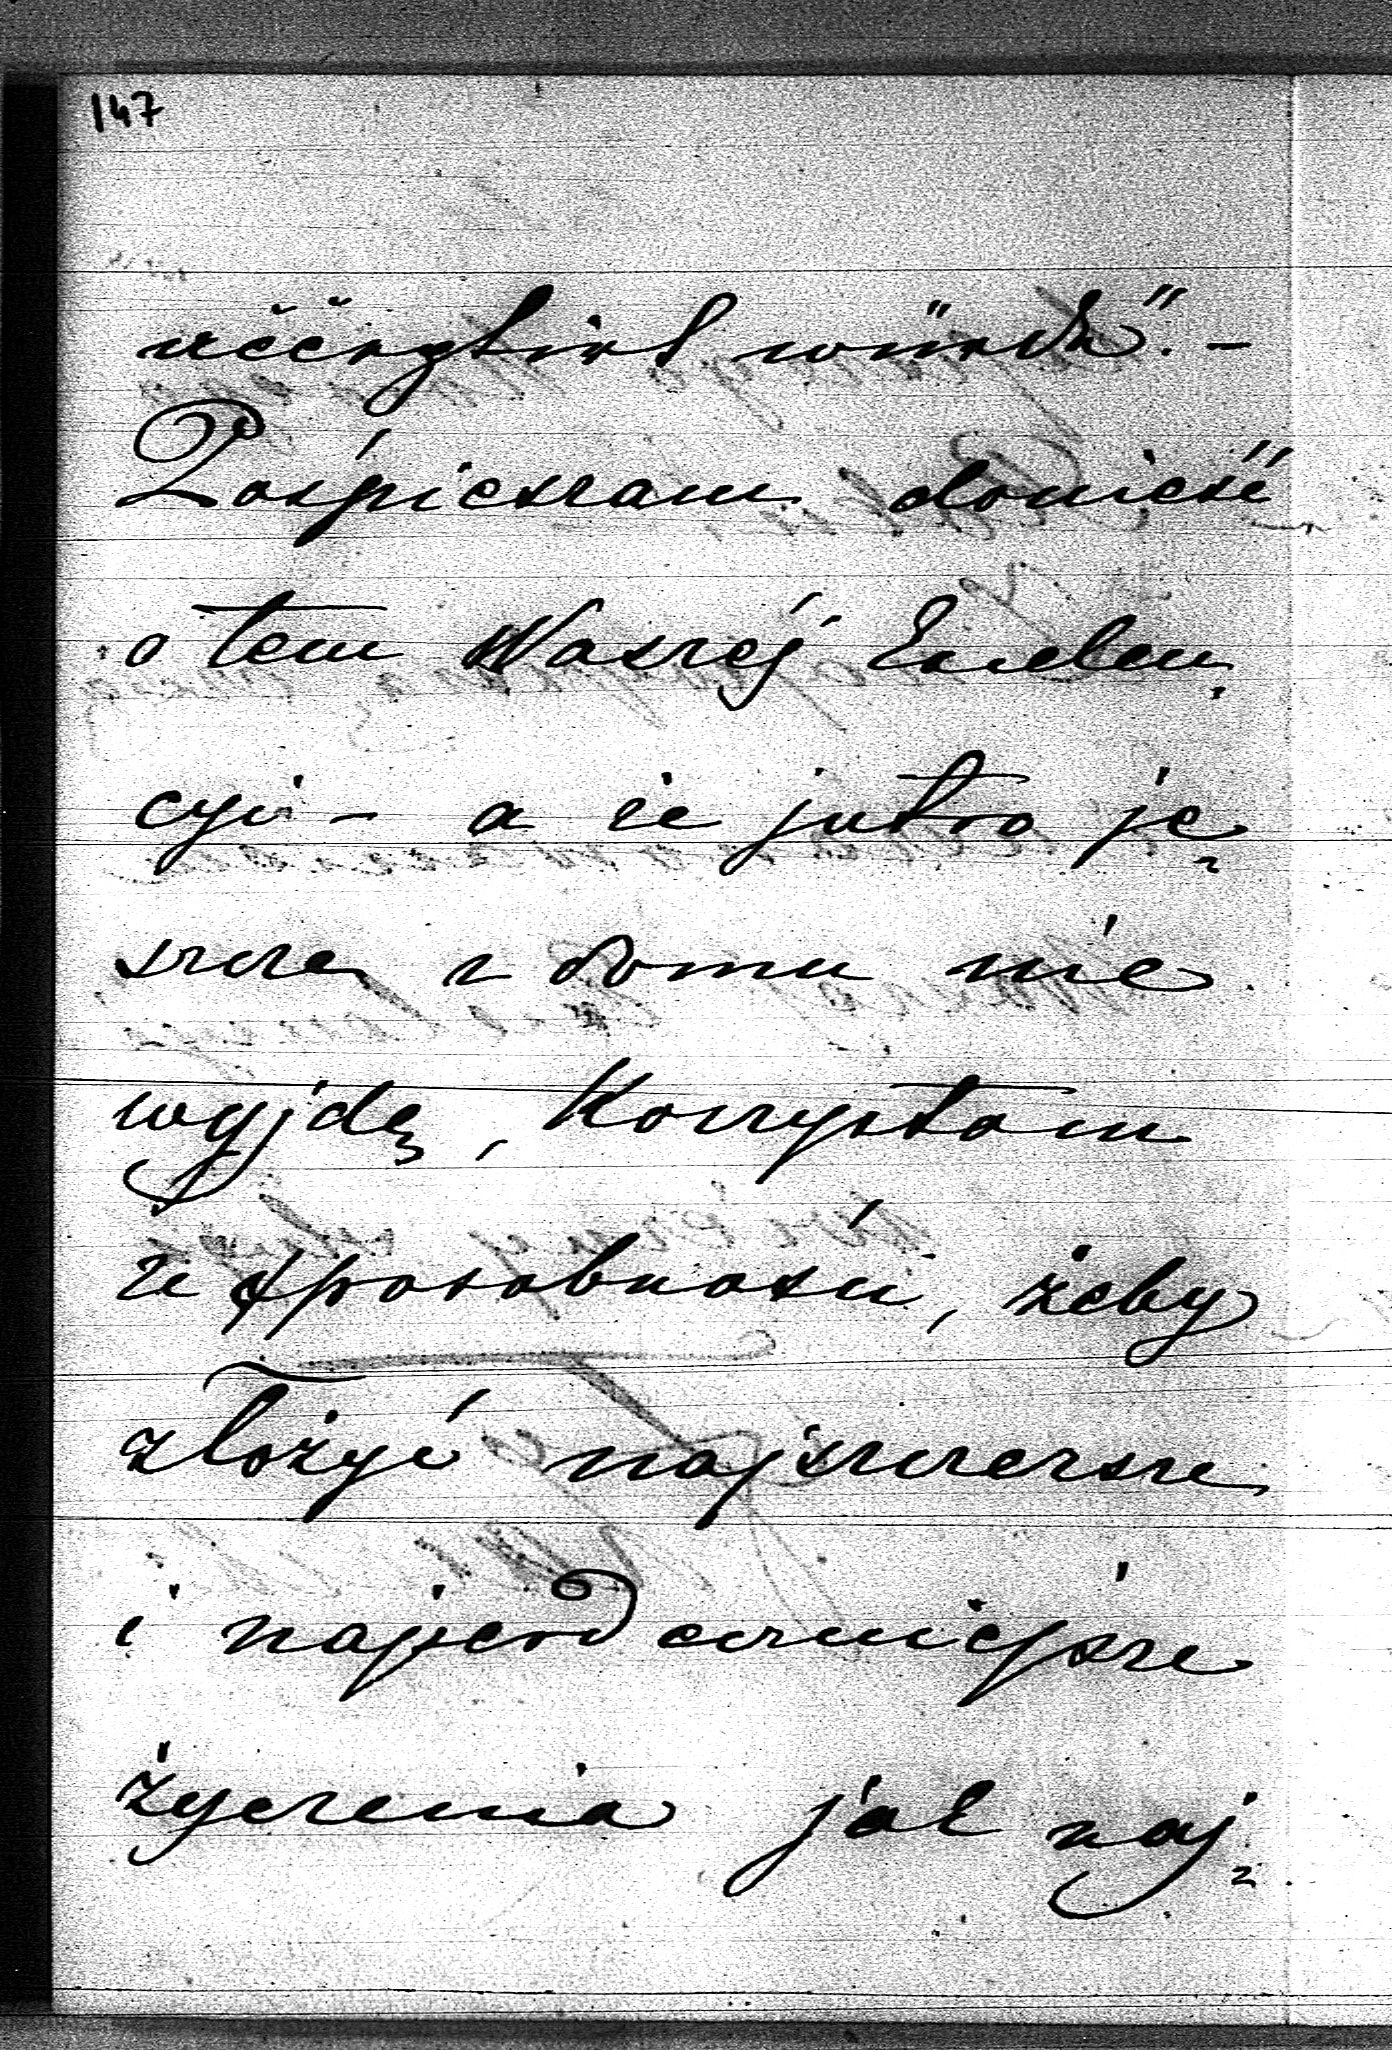 147
acceptirt würde". –
Pospieszam donieść
o tem Waszéj Excelen
cyi – a że jutro je
szcze z domu nie
wyjdę, Korzystam
ze sposobności, żeby
złożyć najszczersze
i najserdeczniejsze
życzenia jak naj